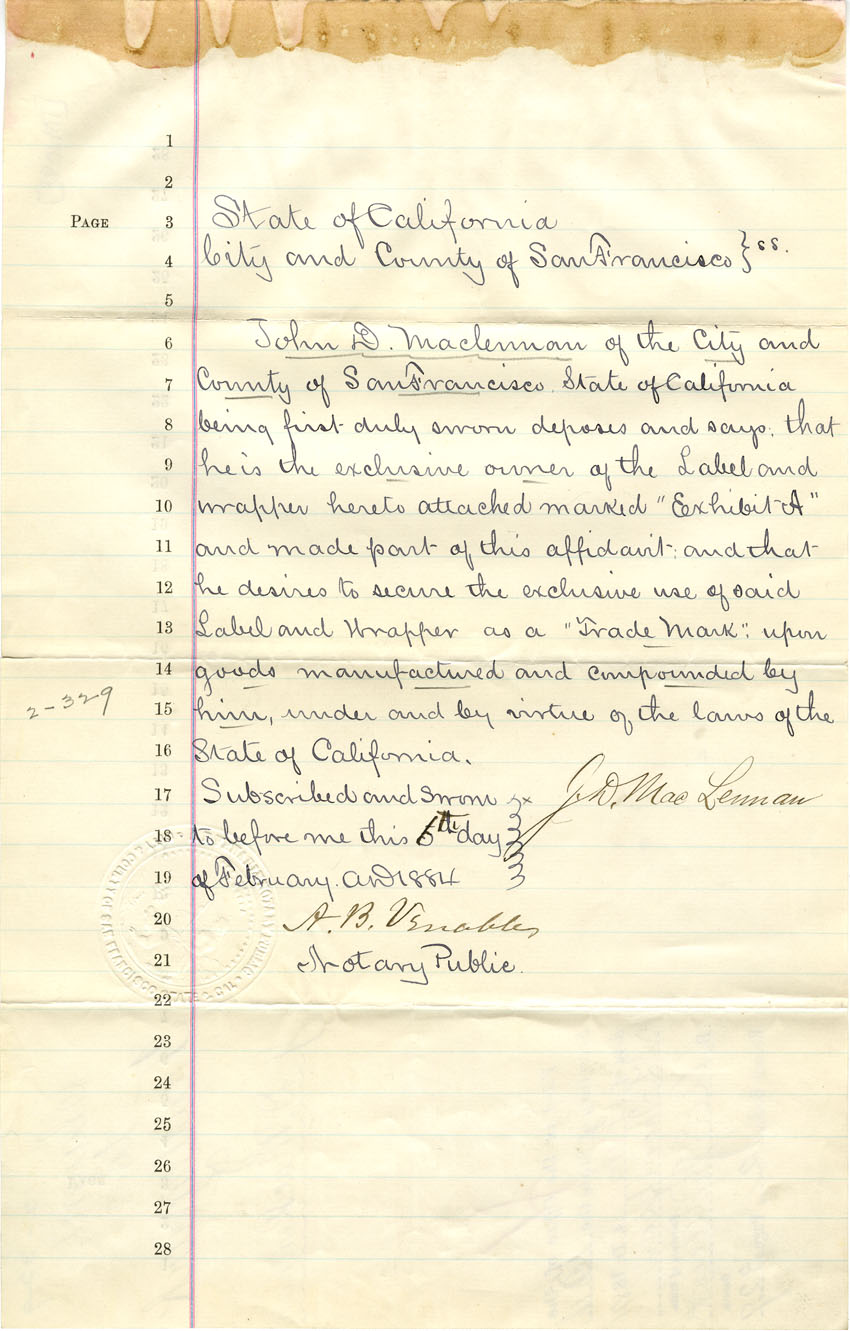 1
2
PAGE 3 State of California
4 City and County of San Francisco } ss.
5
6 John D. Maclennan of the City and
7 County of San Francisco. State of California
8 being first duly sworn deposes and says; that
9 he is the exclusive owner of the Label and
10 wrapper hereto attached marked "Exhibit A"
11 and made part of this affidavit: and that
12 he desires to secure the exclusive use of said
13 Label and Wrapper as a "Trade Mark": upon
14 goods manufactured and compounded by
2-329
15 him, under and by virtue of the laws of the
16 State of California.
17 Subscribed and sworn J. D. Mac Lennan
18 to before me this 6th day
19 of February. AD 1884
20 A. B. Venables
21 Notary Public.
22
23
24
25
26
27
28